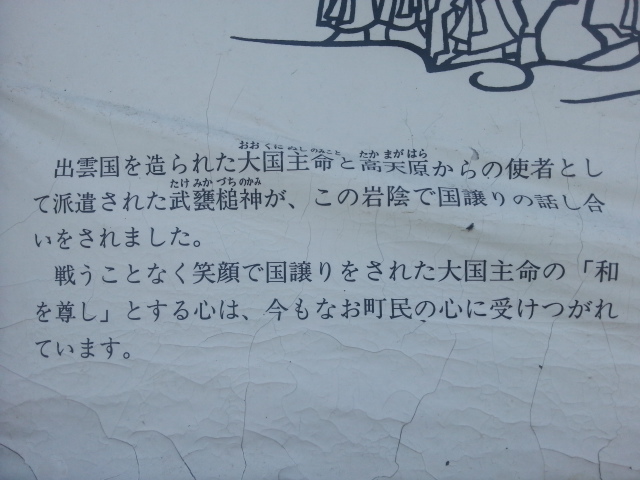 出雲国を造られた大国主命と高天原からの使者とし
て派遣された武甕槌神が、この岩陰で国譲りの話し合
いをされました。
戦うことなく笑顔で国譲りをされた大国主命の「和
を尊し」とする心は、今もなお町民の心に受けつがれ
ています。